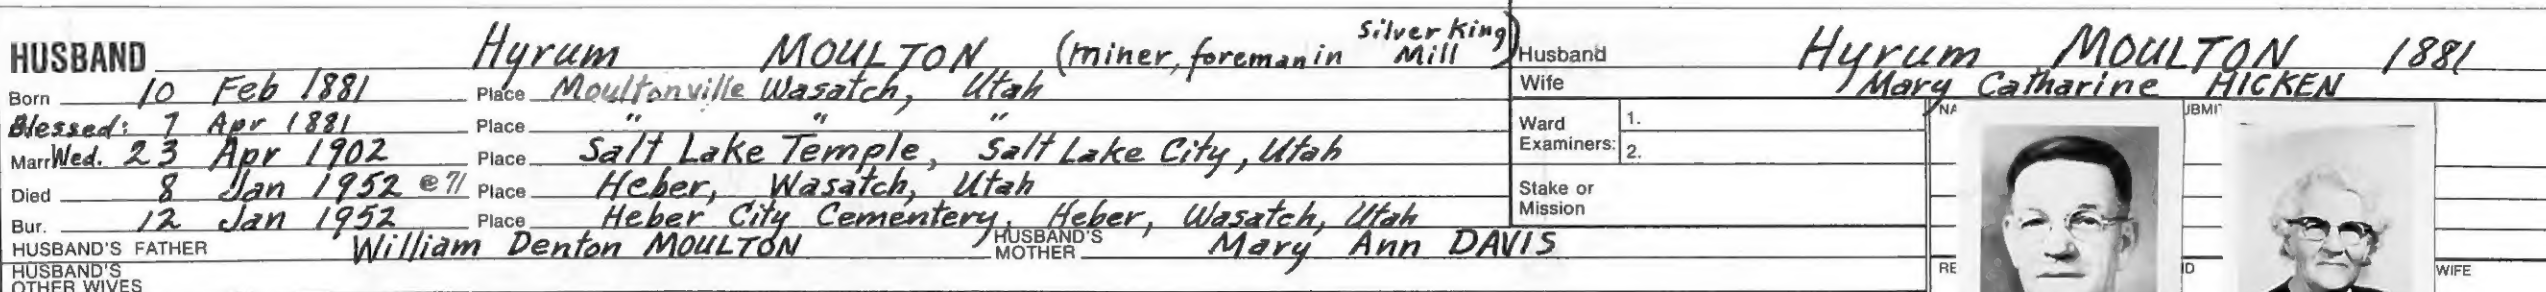 HUSBAND Hyrum MOULTON (miner, foreman in Silver King Mill)
Born 10 Feb 1881 Place Moultonville Wasatch, Utah
Blessed: 7 Apr 1881 Place " " "
Marr Wed. 23 Apr 1902 Place Salt Lake Temple, Salt Lake City, Utah
Died 8 Jan 1952 @ 71 Place Heber, Wasatch, Utah
Bur. 12 Jan 1952 Place Heber City Cementery, Heber, Wasatch, Utah
HUSBAND'S FATHER William Denton MOULTON HUSBAND'S MOTHER Mary Ann DAVIS
HUSBAND'S OTHER WIVES
Husband Hyrum MOULTON 1881
Wife Mary Catharine HICKEN
Ward Examiners: 1.
2.
Stake or Mission
NA UBMI
RE ID WIFE